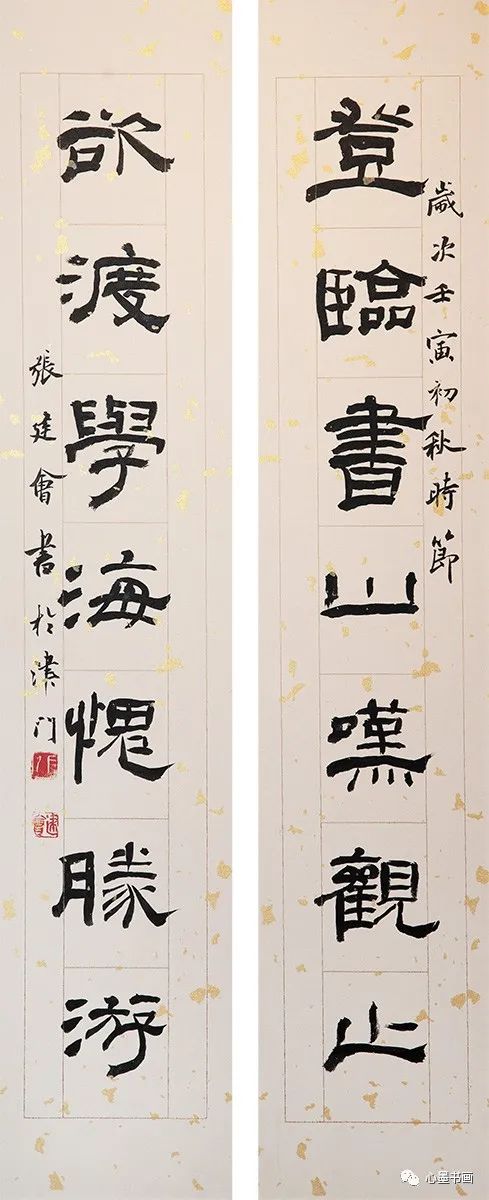 歲次壬寅初秋時節
登臨書山嘆觀止
欲渡學海愧勝游
張建會書於津門
心墨书画